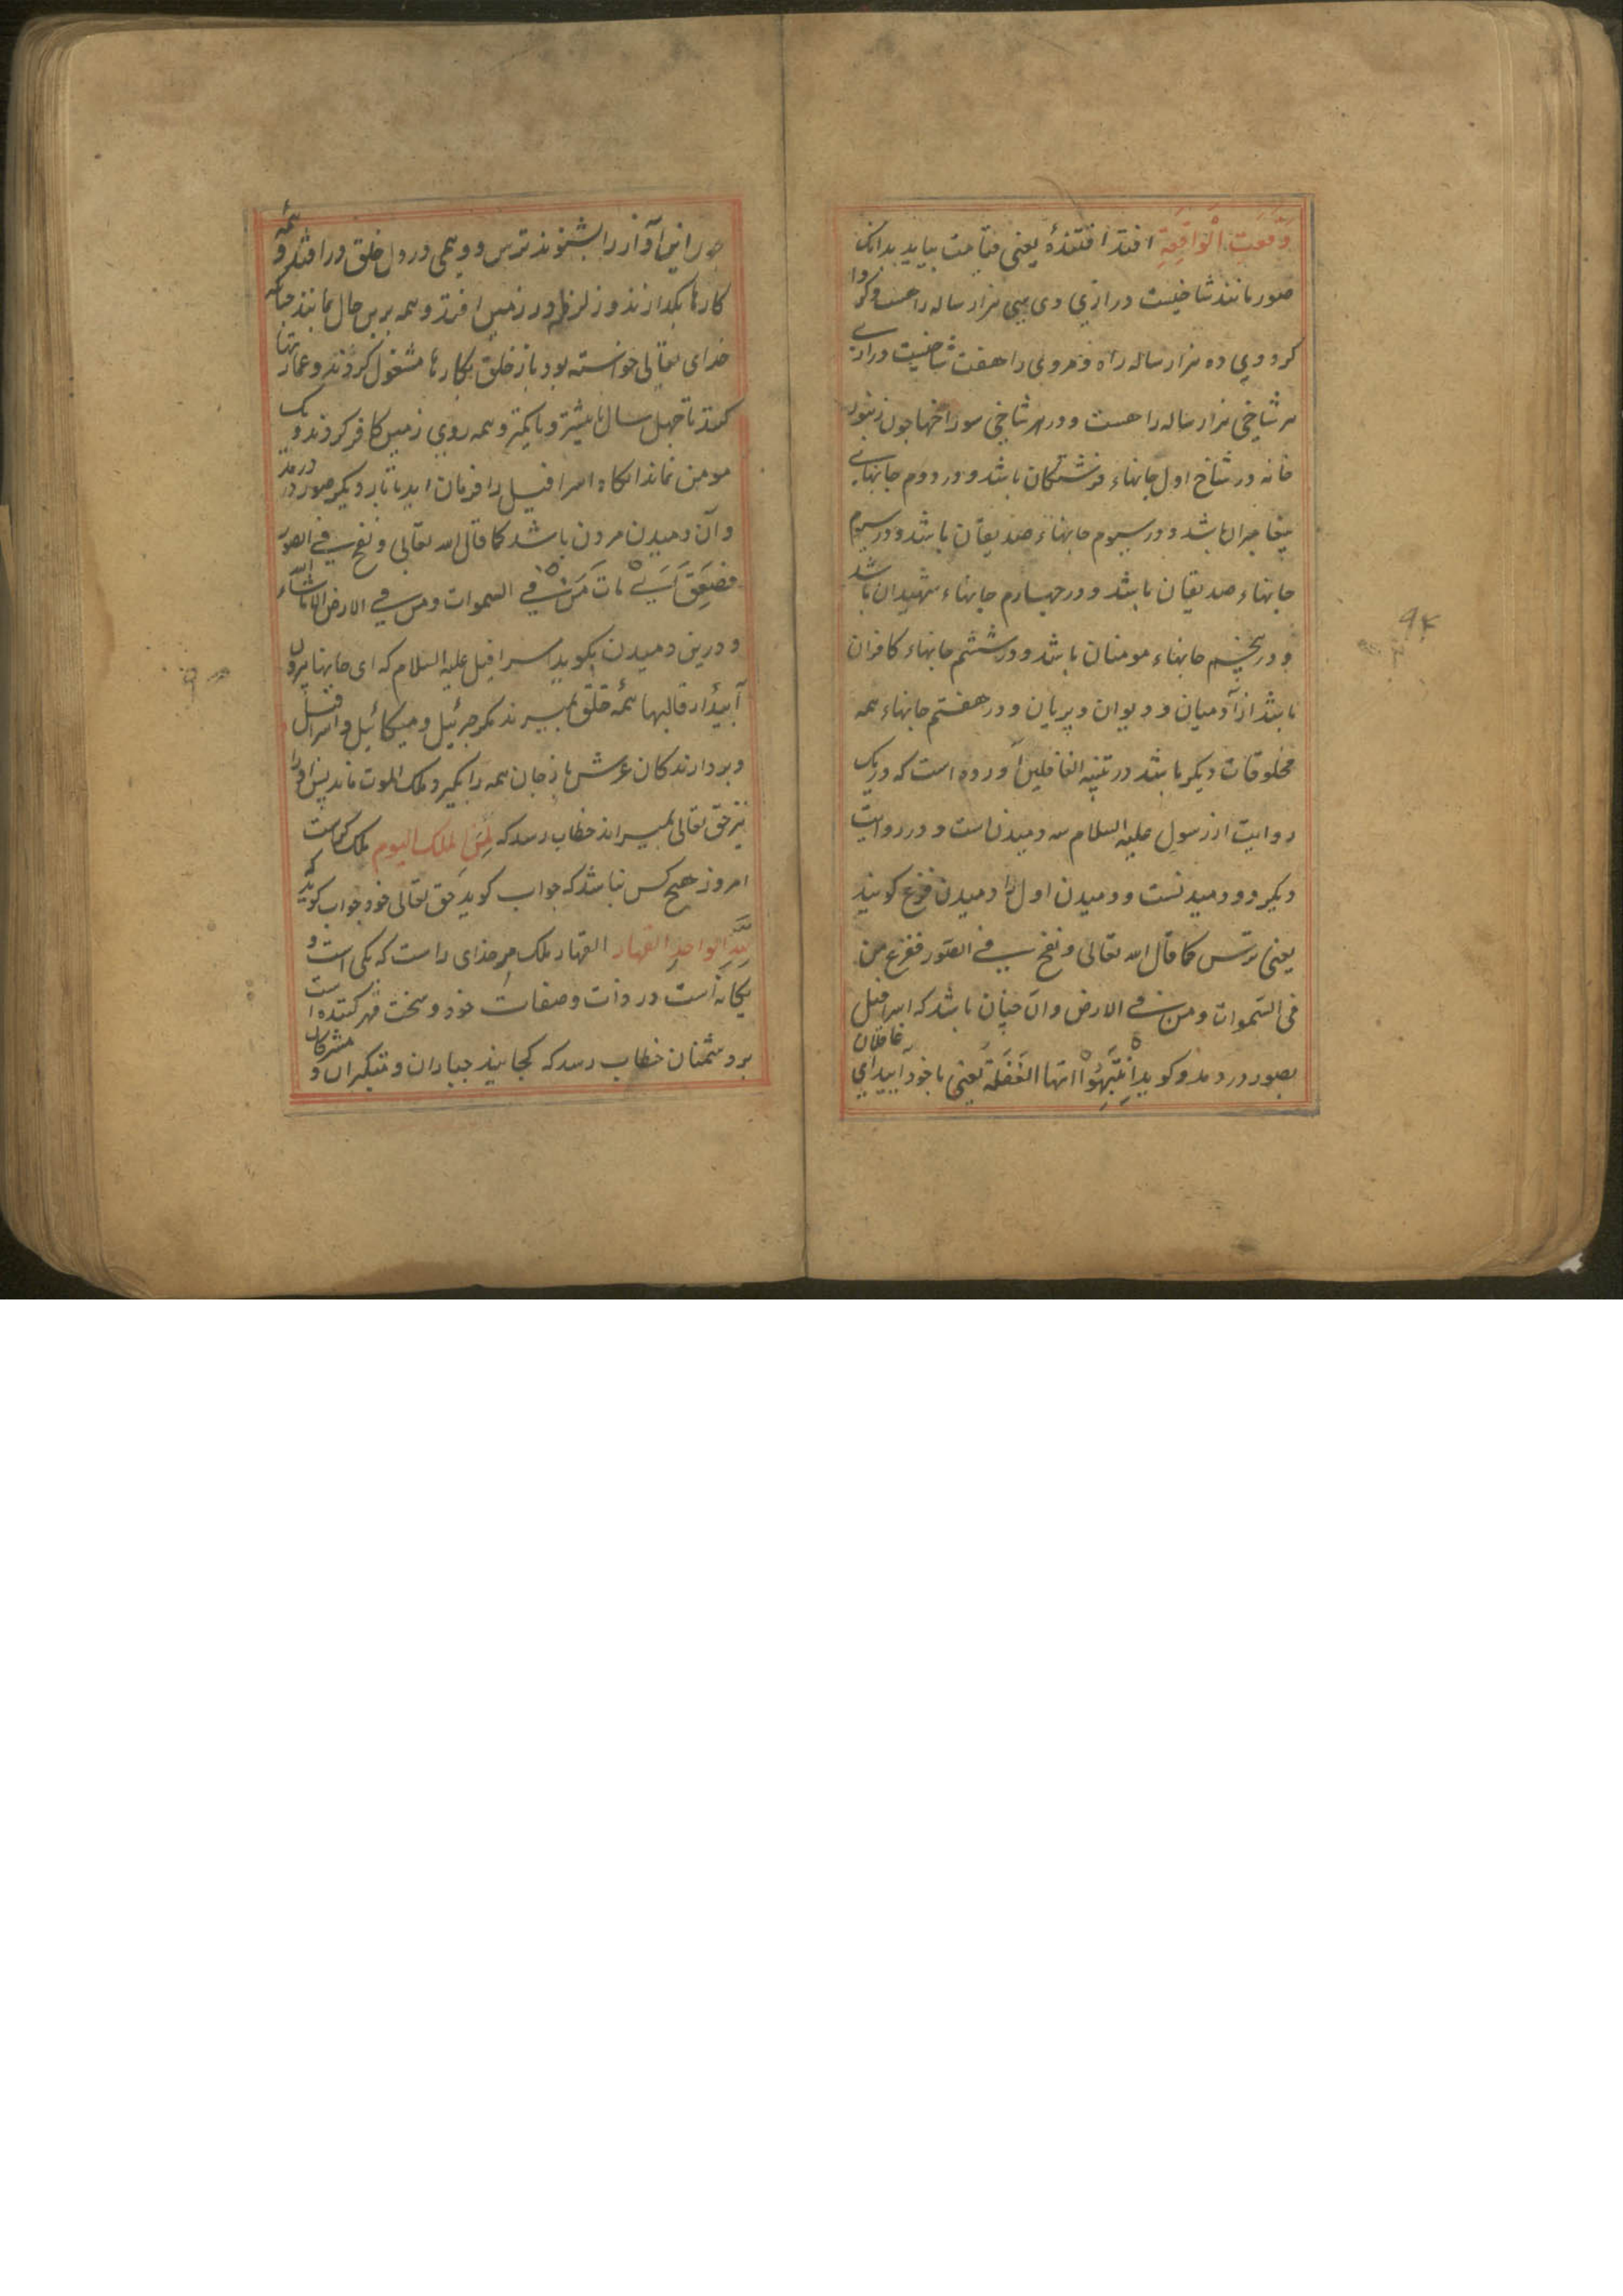 وَقَعَتِ الْوَاقِعَةِ افتد افتندهٔ یعنی قیامت بیاید بدانک
صور مانند شاخیست درازیٔ وی سی هزار ساله راهست و کرد
کرد وی ده هزار ساله راه و مر وی را هفت شاخیست درازیٔ
هر شاخی هزار ساله راهست و در هر شاخی سوراخها چون زنبور
خانه در شاخ اول جانهاء فرشتکان باشد و در دوم جانهاے
پیغامبران باشد و در سیوم جانهاء صدیقان باشد و در سیوم
جانهاء صدیقان باشد و در چهارم جانهاء شهیدان باشد
و در پنجم جانهاء مومنان باشد و در ششم جانهاء کافران
باشد از آدمیان و دیوان و پریان و در هفتم جانهاء همه
مخلوقات دیکر باشد در تنبیه الغافلین آورده است که در یک
روایت از رسول علیه السلام سه دمیدن است و در روایت
دیکر دو دمیدنست و دمیدن اول را دمیدن فزع کویند
یعنی ترس کما قال الله تعالی و نفخ فی الصور ففزع من
فی السموات و من فی الارض و آن چنان باشد که اسرافیل
بصور در دمد و کوید اِنْتَبِهُوْا ایتها الغَفَلَة یعنی با خود ایید ای غافلان
چون این آواز را بشنوند ترس و وهمی در دل خلق در افتد و همه
کارها بکذارند و زلزله در زمین افتد و همه برین حال بمانند چنانکه
خدای تعالی خواسته بود باز خلق بکارها مشغول کردند و عمارتها
کنند تا چهل سال یا بیشتر و یا کمتر و همه روی زمین کافر کردند و یک
مومن نماند انکاه اسرافیل را فرمان اید تا بار دیکر صور در دمد
و آن دمیدن مردن باشد کما قال الله تعالی و نفخ فی الصور
فصَعِقَ اَیْ مَاتَ مَنْ فی السموات و من فی الارض الا ما شاء الله
و درین دمیدن بکوید اسرافیل علیه السلام که ای جانها بیرون
آیید از قالبها همهٔ خلق بمیرند مکر جبرئیل و میکائیل و اسرافیل
و بردارندکان عرش باز جان همه را بکیرد ملک الموت ماند پس او را
نیز حق تعالی بمیراند خطاب رسد که لِمَنِ الملک الیوم ملک کراست
امروز هیچ کس نباشد که جواب کوید حق تعالی خود جواب کوید که
لِلّٰهِ الواحدِ القهار القهار ملک مر خدای راست که یکی است و
یکانه است در ذات و صفات خود و سخت قهر کننده است
بر دشمنان خطاب رسد که کجایید جباران و متکبران و مشرکان